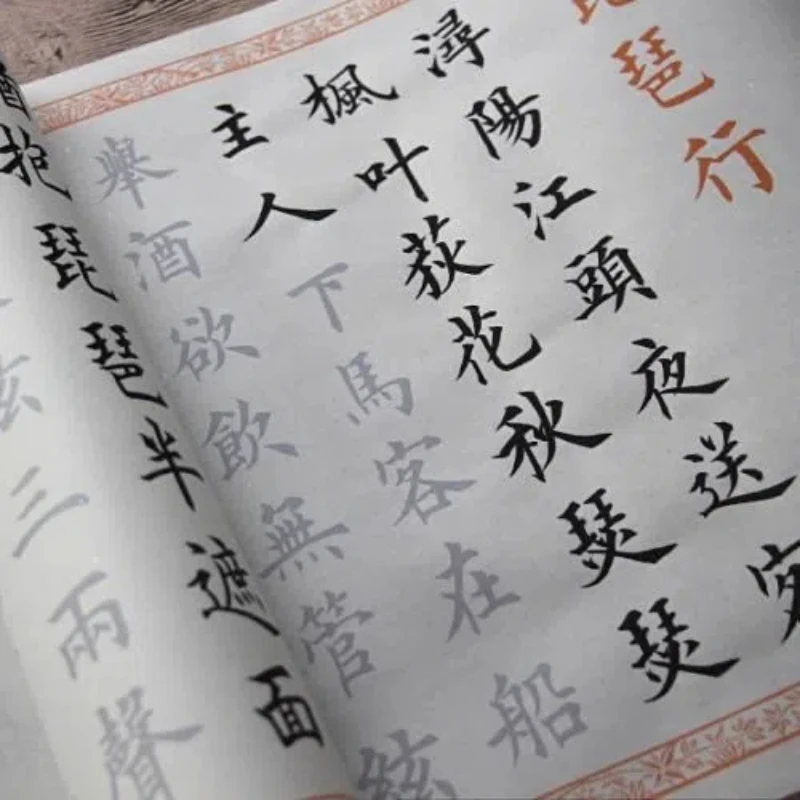 琵琶行
潯陽江頭夜送客
楓叶荻花秋瑟瑟
主人下馬客在船
舉酒欲飲無管絃
猶抱琵琶半遮面
絃三兩聲